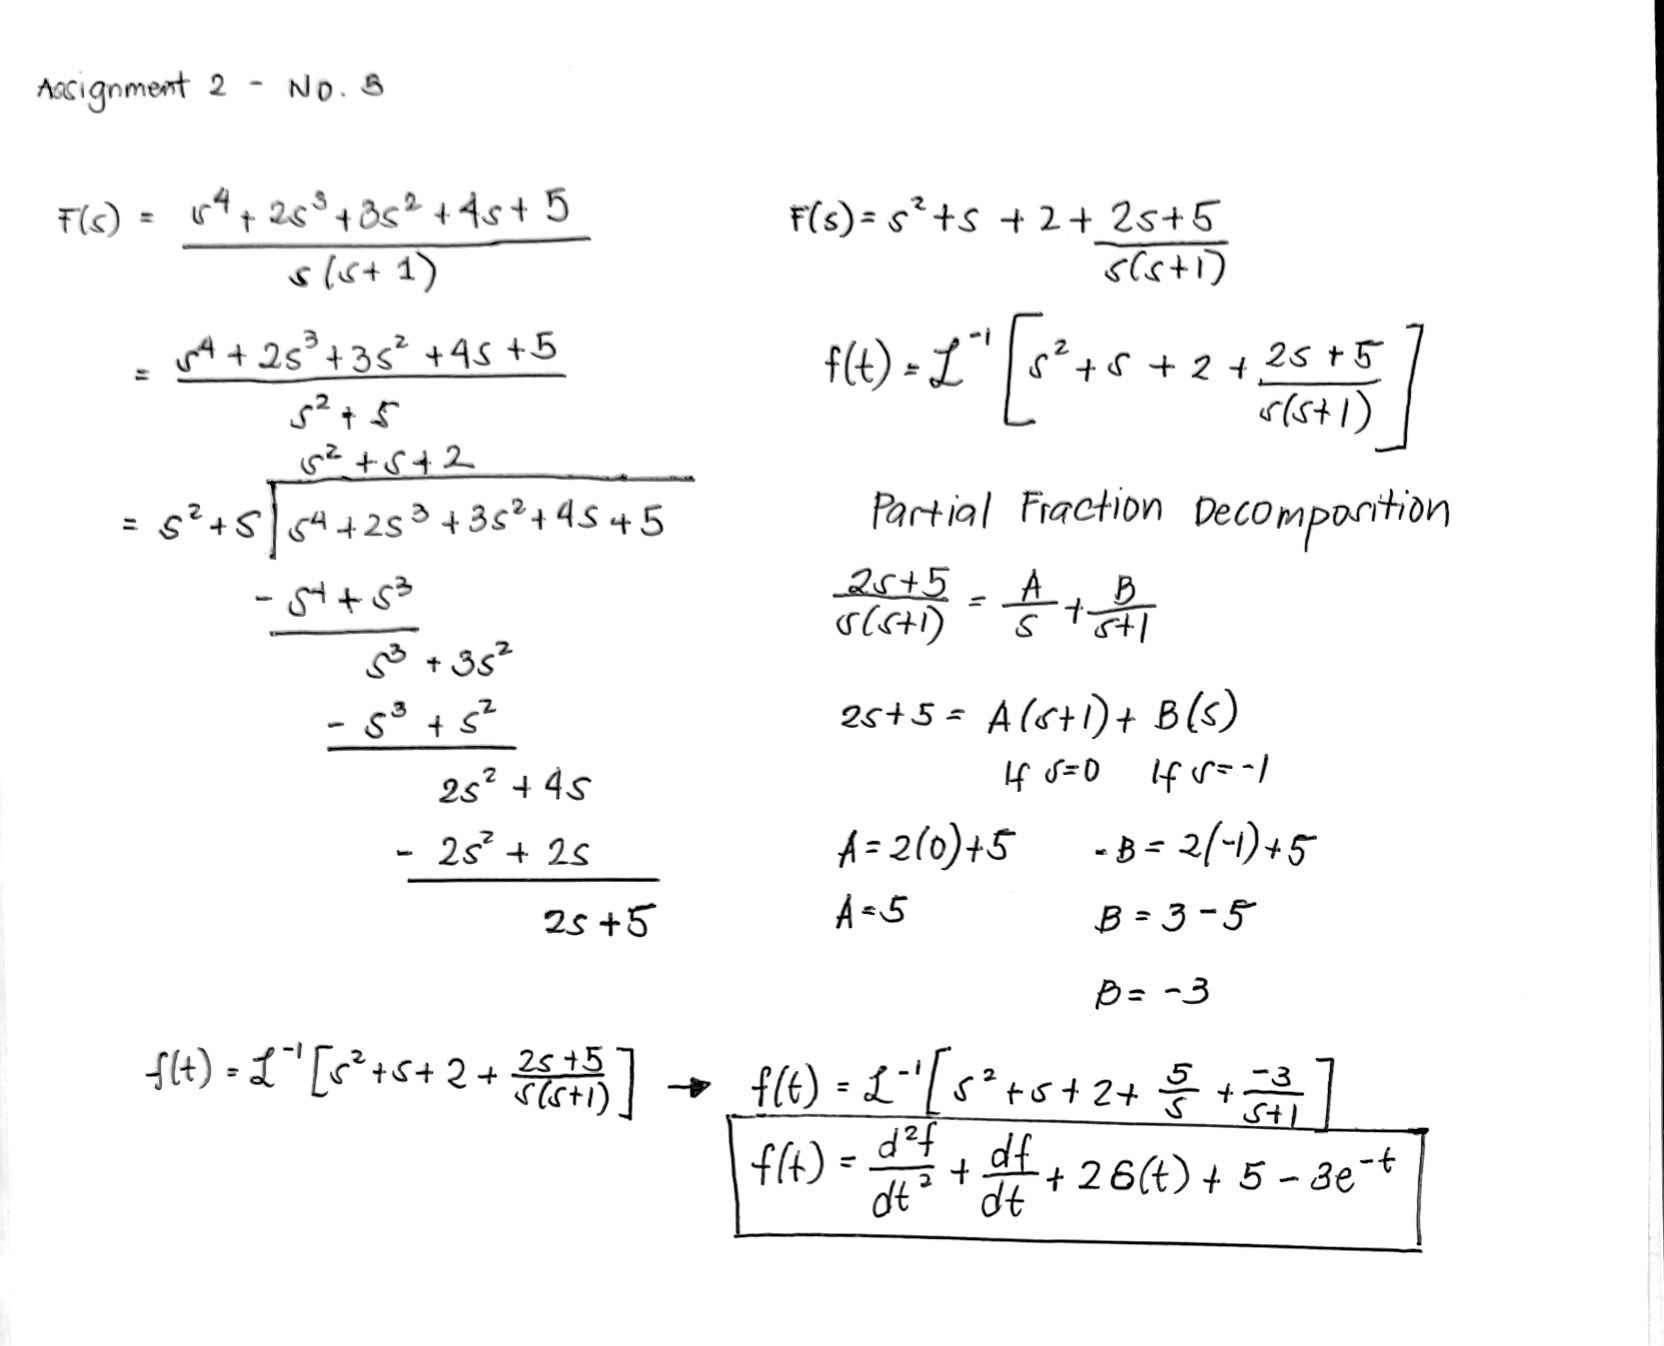 Assignment 2 - No. 3
F(s) = (s⁴ + 2s³ + 3s² + 4s + 5) / (s(s + 1))
= (s⁴ + 2s³ + 3s² + 4s + 5) / (s² + s)
s² + s + 2
= s² + s | s⁴ + 2s³ + 3s² + 4s + 5
- s⁴ + s³
s³ + 3s²
- s³ + s²
2s² + 4s
- 2s² + 2s
2s + 5
F(s) = s² + s + 2 + (2s + 5) / (s(s+1))
f(t) = ℒ⁻¹ [s² + s + 2 + (2s + 5) / (s(s+1))]
Partial Fraction Decomposition
(2s+5) / (s(s+1)) = A/s + B/(s+1)
2s + 5 = A(s+1) + B(s)
If s=0 If s=-1
A = 2(0)+5 -B = 2(-1)+5
A = 5 B = 3 - 5
B = -3
f(t) = ℒ⁻¹ [s² + s + 2 + (2s+5) / (s(s+1))] → f(t) = ℒ⁻¹ [s² + s + 2 + 5/s + -3/(s+1)]
f(t) = d²f/dt² + df/dt + 2δ(t) + 5 - 3e^-t